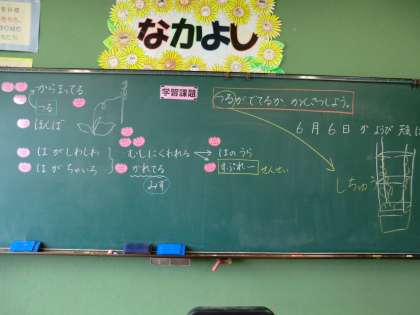 なかよし
学習課題
つるがでてるか かんさつしよう。
6月6日 かようび
からまってる
つる
はんぱ
はがしわしわ
はがちゃいろ
むしにくわれる
かれてる
みず
はのうら
すぷれー
せんせい
しちゅう